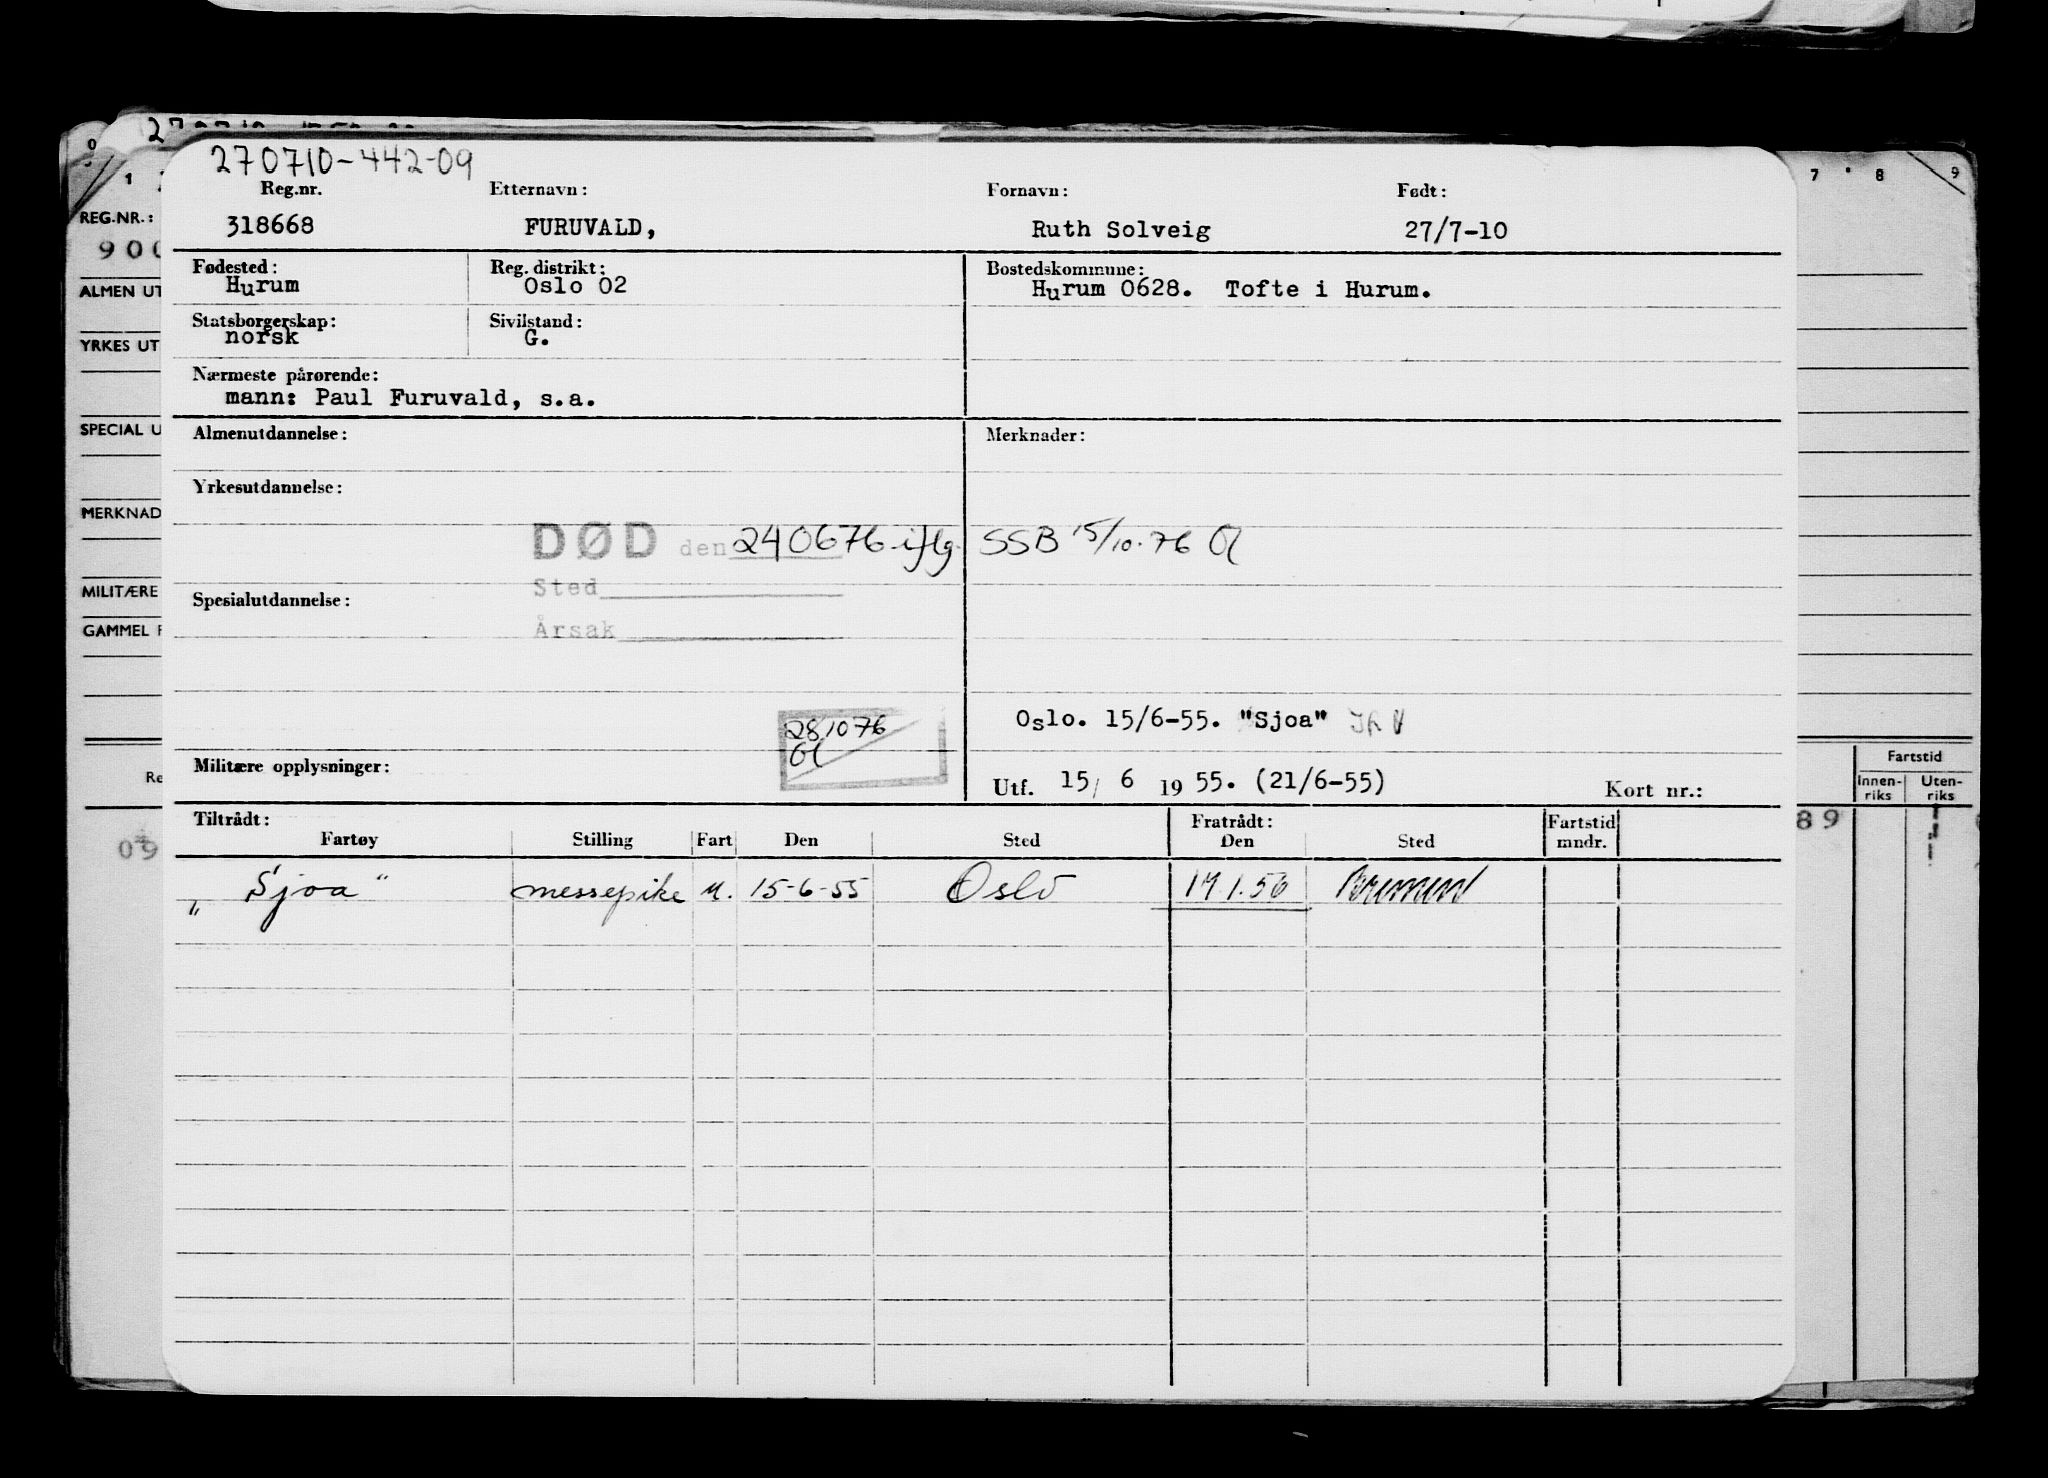 270710-442-09
Reg.nr. Etternavn: Fornavn: Født:
318668 FURUVALD, Ruth Solveig 27/7-10
Fødested: Reg. distrikt: Bostedskommune:
Hurum Oslo 02 Hurum 0628. Tofte i Hurum.
Statsborgerskap: Sivilstand:
norsk G.
Nærmeste pårørende:
mann: Paul Furuvald, s.a.
Almenutdannelse: Merknader:
Yrkesutdannelse:
DØD den 240676 iflg. SSB 15/10-76
Sted
Spesialutdannelse:
Årsak
Oslo. 15/6-55. "Sjoa"
281076
Militære opplysninger:
Utf. 15/ 6 19 55. (21/6-55) Kort nr.:
Tiltrådt: Fratrådt: Fartstid
Fartøy Stilling Fart Den Sted Den Sted mndr.
„Sjoa" messepike u. 15-6-55 Oslo
REG.NR.:
900
ALMEN UT
YRKES UT
SPECIAL U
MERKNAD
MILITÆRE
GAMMEL F
Re
09
0 1
7 8 9
Fartstid
Innen- Uten-
riks riks
89